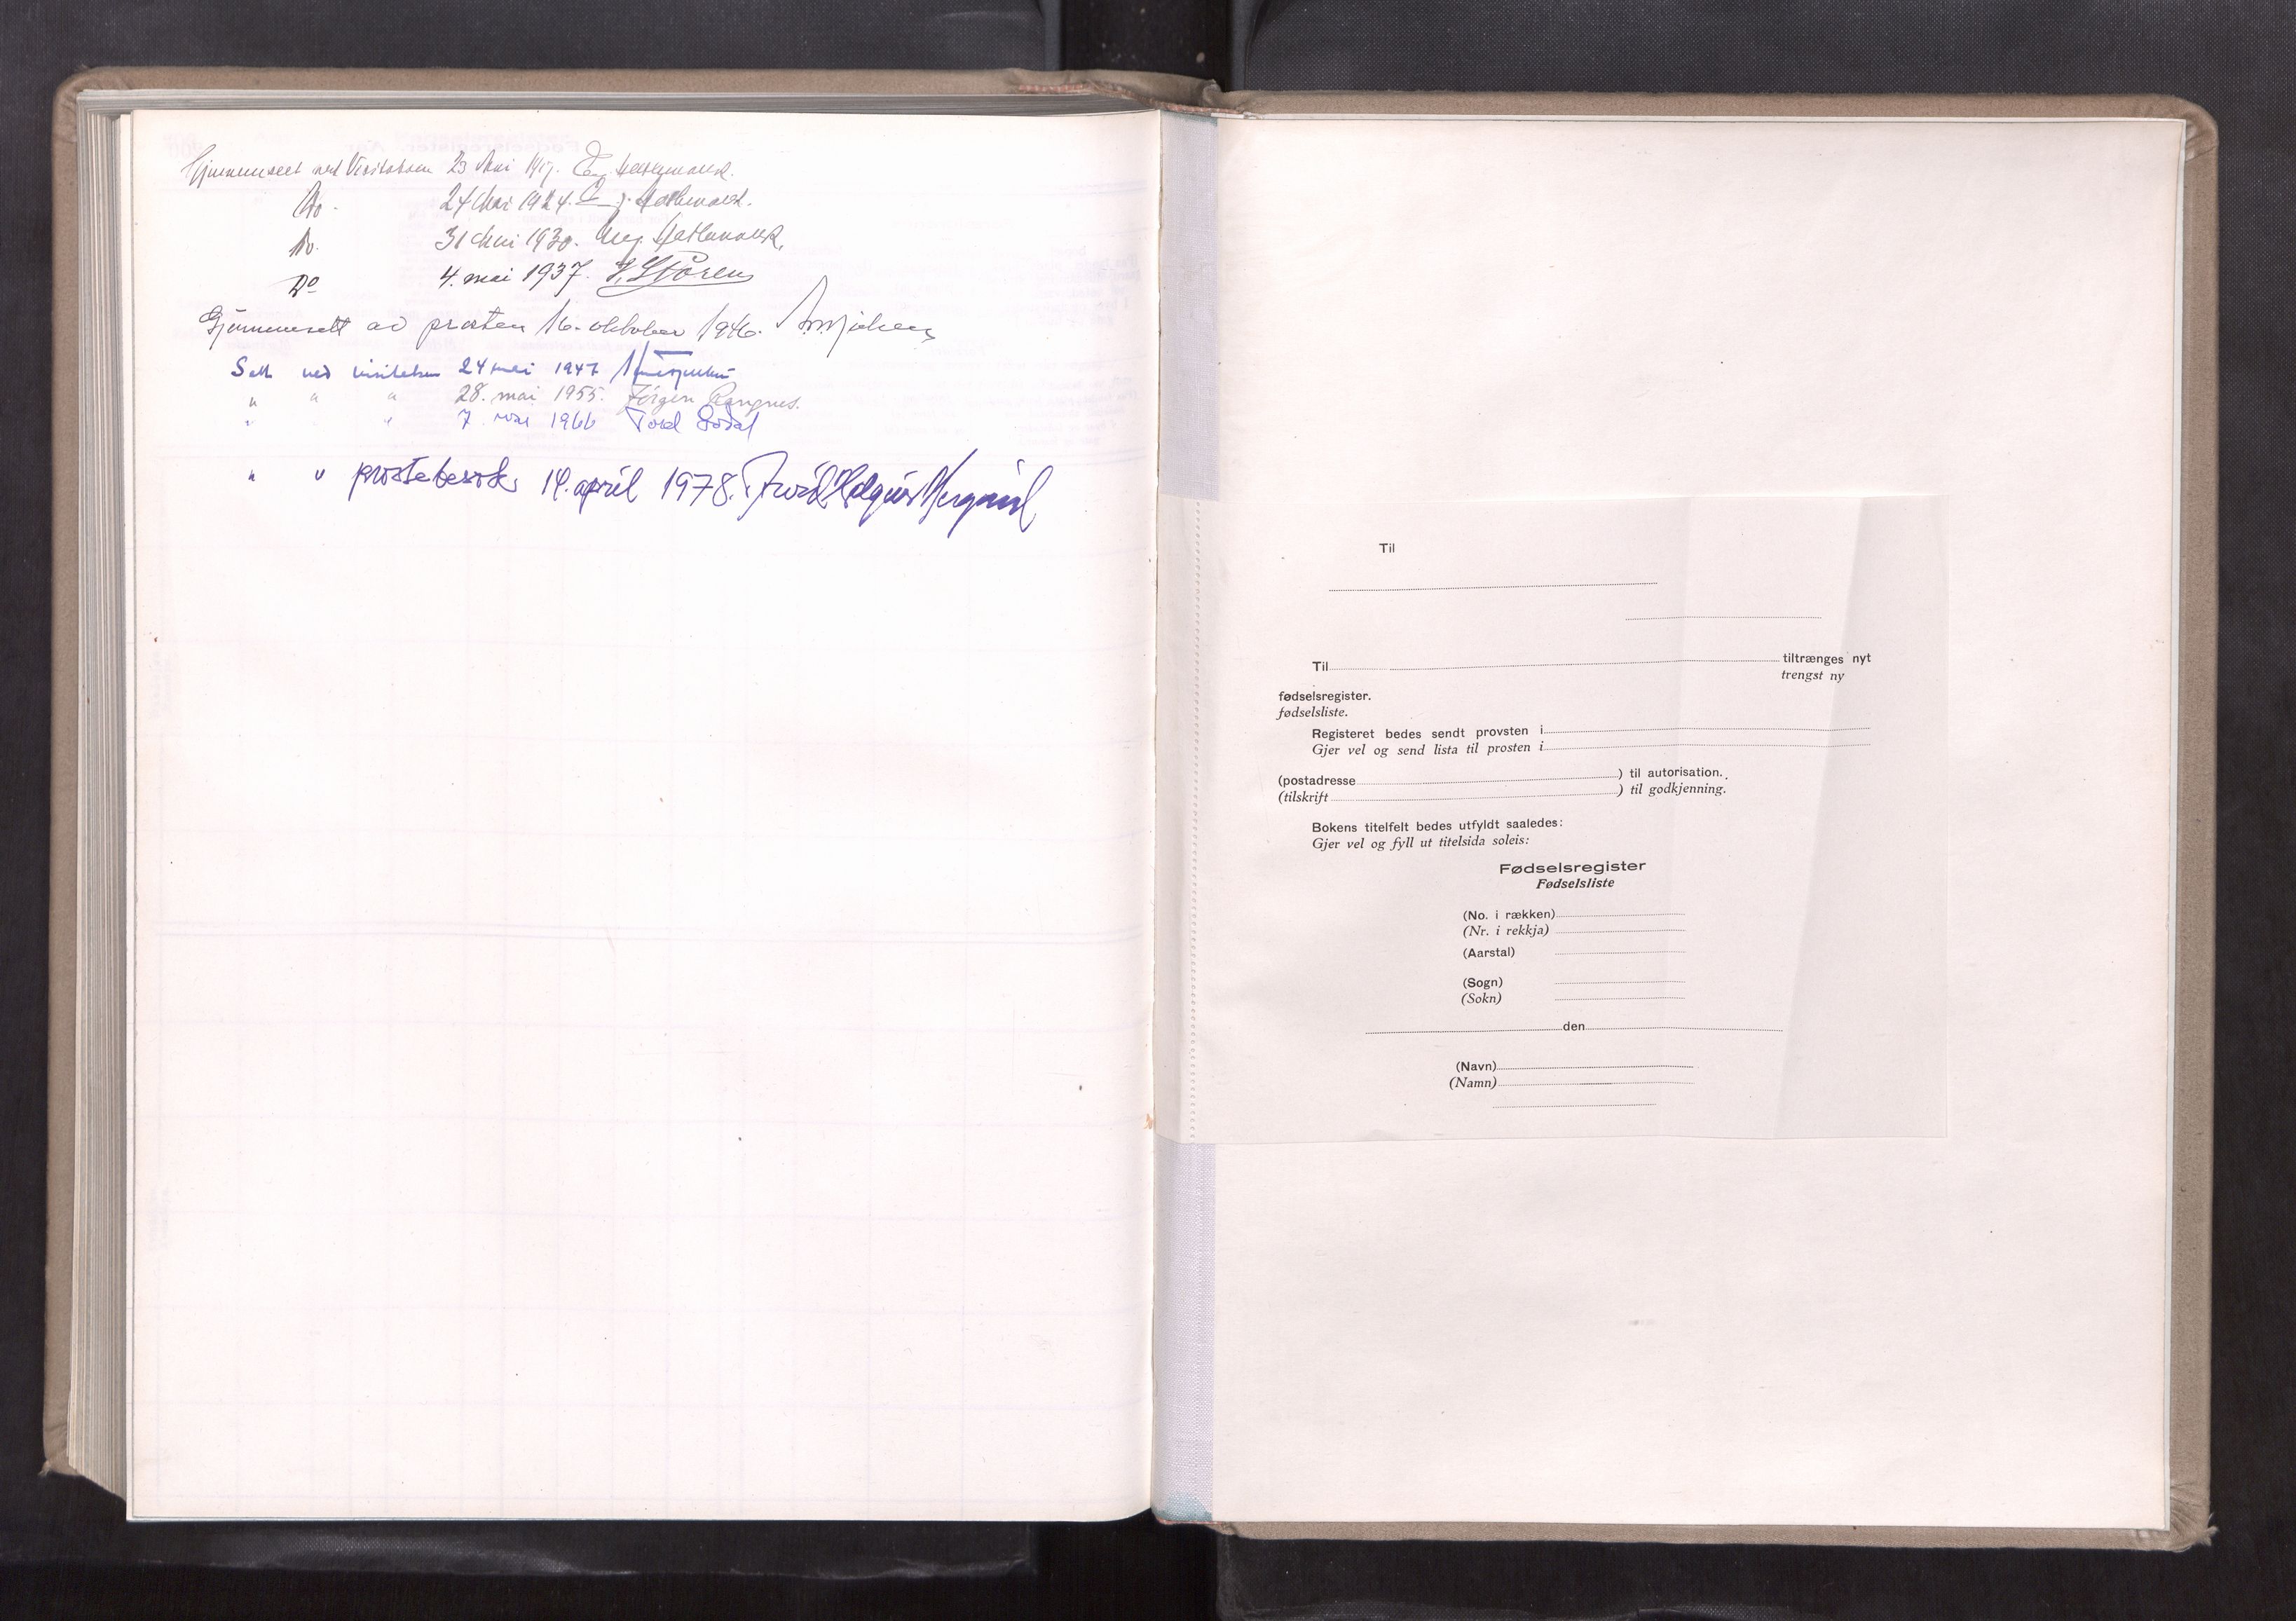 Gjennemseet ved Visitatsen 23 Mai
Do. 24 Mai 1924.
Do. 31 Mai 1930.
Do 4. mai 1937. Støren
Gjennemsett av prosten 16. oktober 1946.
Sett ved visitatsen 24 mai 1947
" " " 28. mai 1955. Jörgen
" " " 7. mai 1966 Tord Godal
" v prostebesøk 14. april 1978.
Til
Til tiltrænges nyt
trengst ny
fødselsregister.
fødselsliste.
Registeret bedes sendt provsten i
Gjer vel og send lista til prosten i
(postadresse ) til autorisation.
(tilskrift ) til godkjenning.
Bokens titelfelt bedes utfyldt saaledes:
Gjer vel og fyll ut titelsida soleis:
Fødselsregister
Fødselsliste
(No. i rækken)
(Nr. i rekkja)
(Aarstal)
(Sogn)
(Sokn)
den
(Navn)
(Namn)